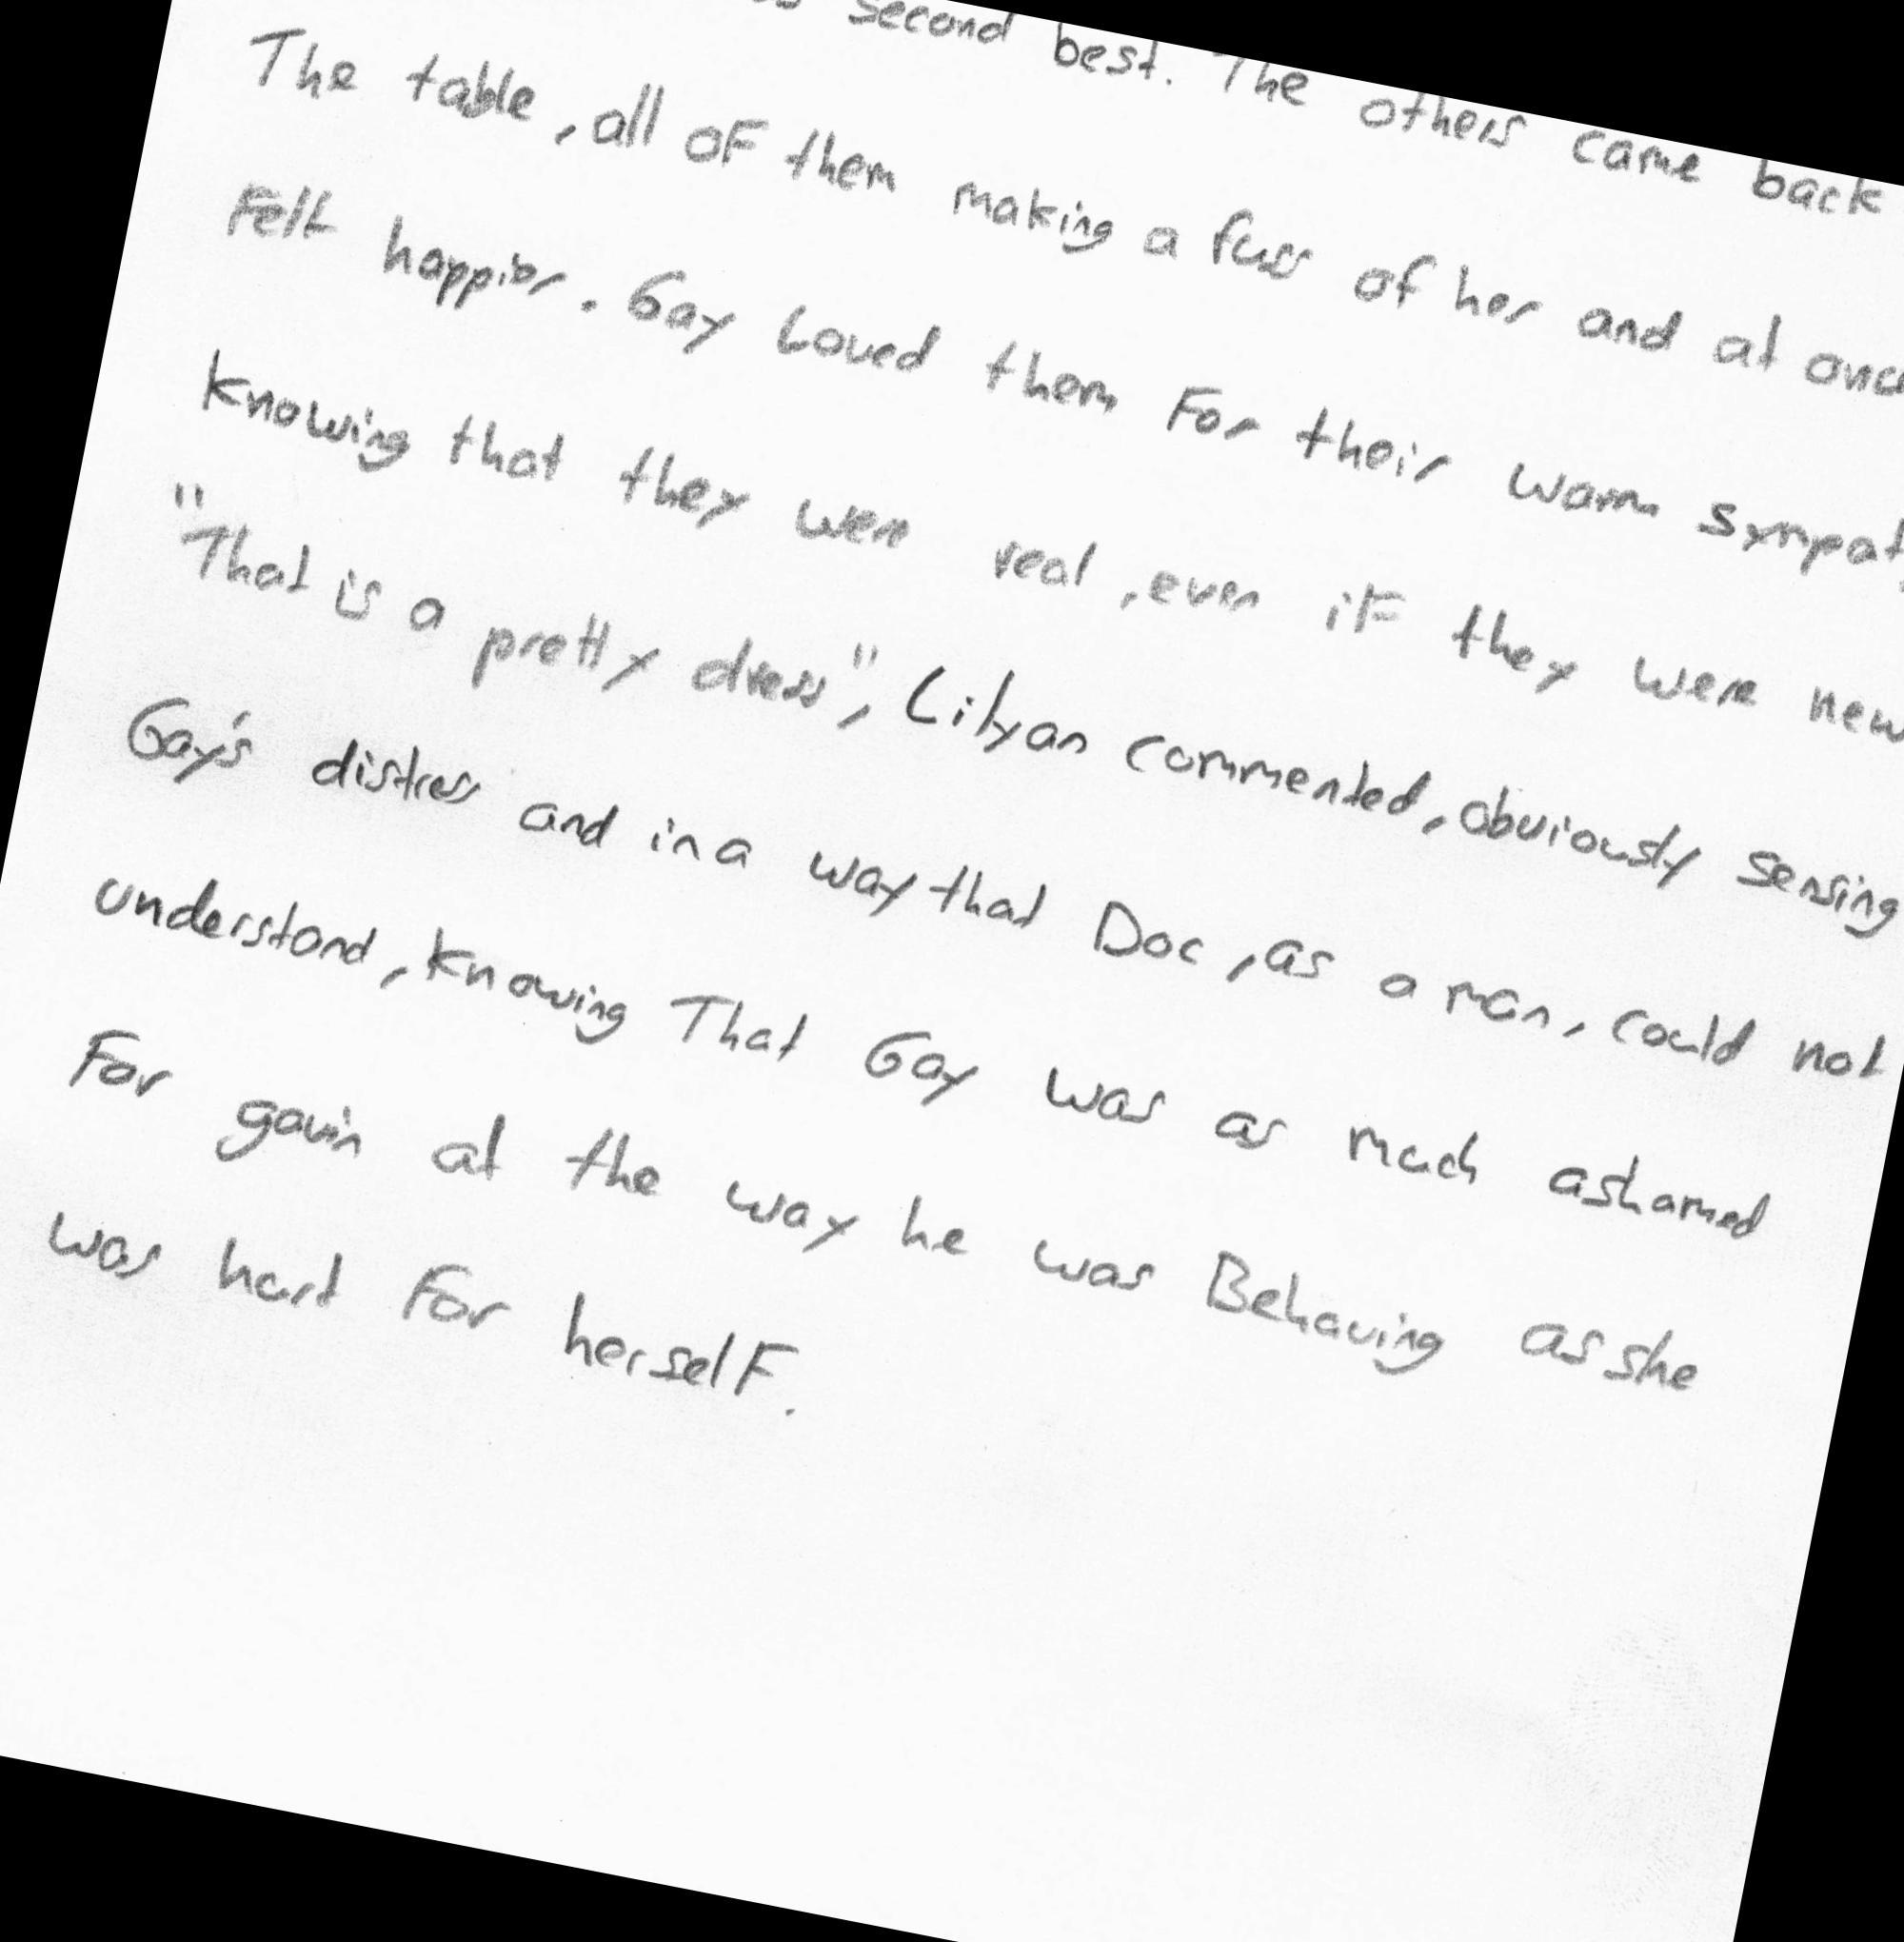 second best. The others came back
The table, all oF them making a fuss of her and at once
Felt happier. Gay Loved them For their warm
Knowing that they were real, even iF they were new
"That is a pretty dress", Lilyan commented, obviously sensing
Gay's distress and in a way that Doc, as a man, could not
understand, knowing That Gay was as much ashamed
For gavin at the way he was Behaving as she
was hurt For herselF.